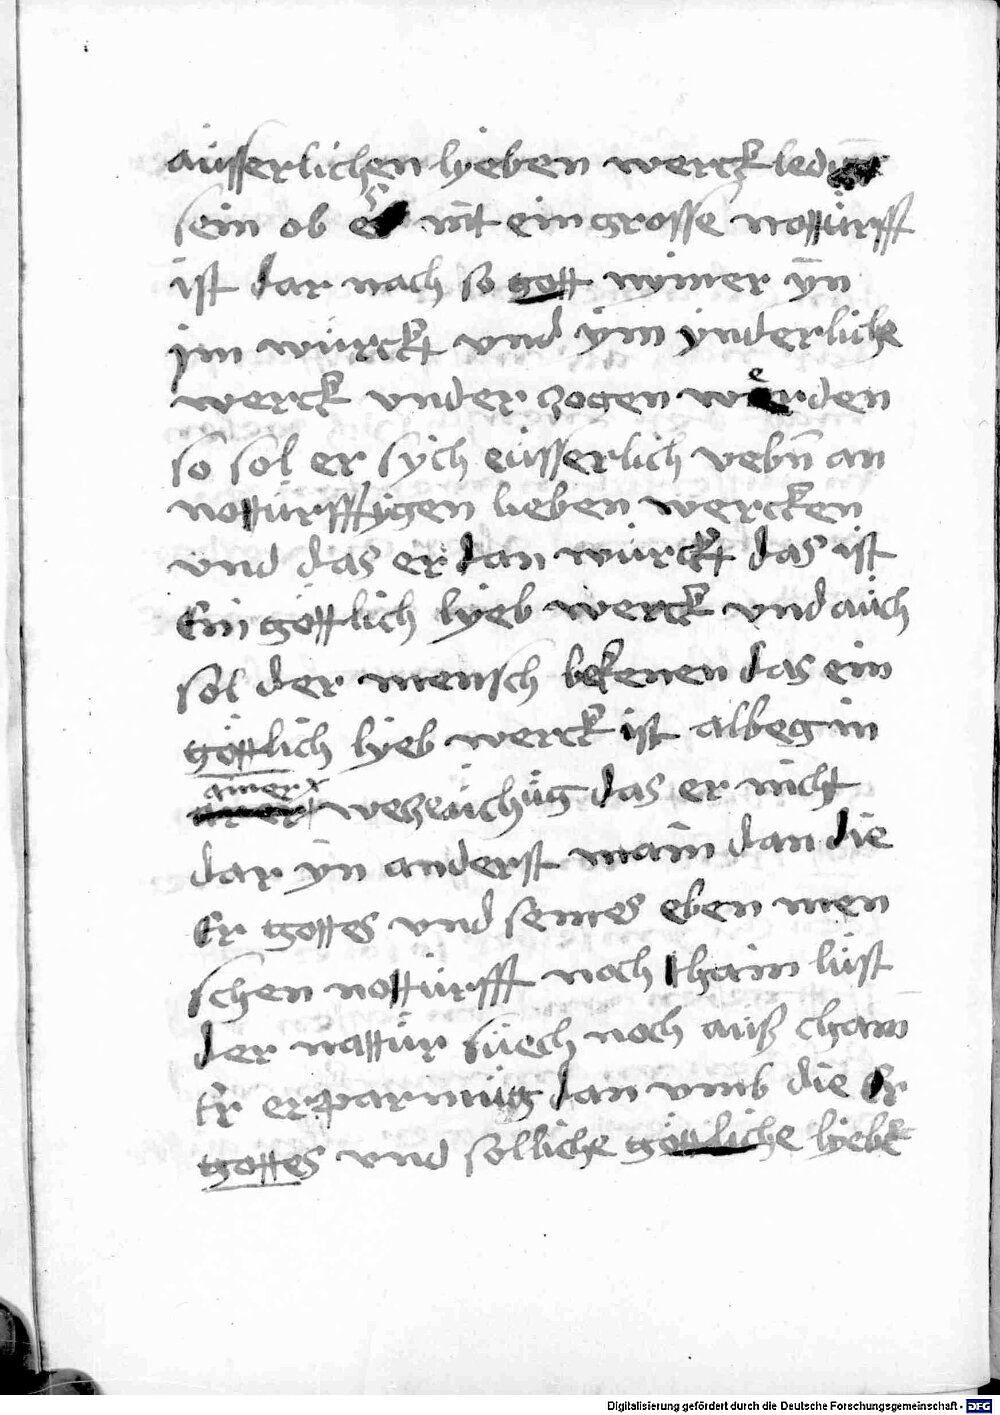 aüsserlichen lyeben werck ledig
sein ob es nit ein grosse nottürfft
ist dar nach so gott nymer yn
im würckt vnd ym ynderliche
werck vnder zogen werden
so sol er sych eüsserlich vebn̄ an
nottürfftygen lieben wercken
vnd das er dan würckt das ist
Ein göttlich lyeb werck vnd aüch
sol der mensch bekenen das ein
göttlich lyeb werck ist albeg in
ainer das er nicht
dar yn anderst main dan die
Er gottes vnd seines eben men
schen nottürfft noch khain lüst
der nattür süech noch aüß chain
Er erparmüg dan vmb die Er
gottes vnd solliche göttliche lyebe
Digitalisierung gefördert durch die Deutsche Forschungsgemeinschaft - DFG